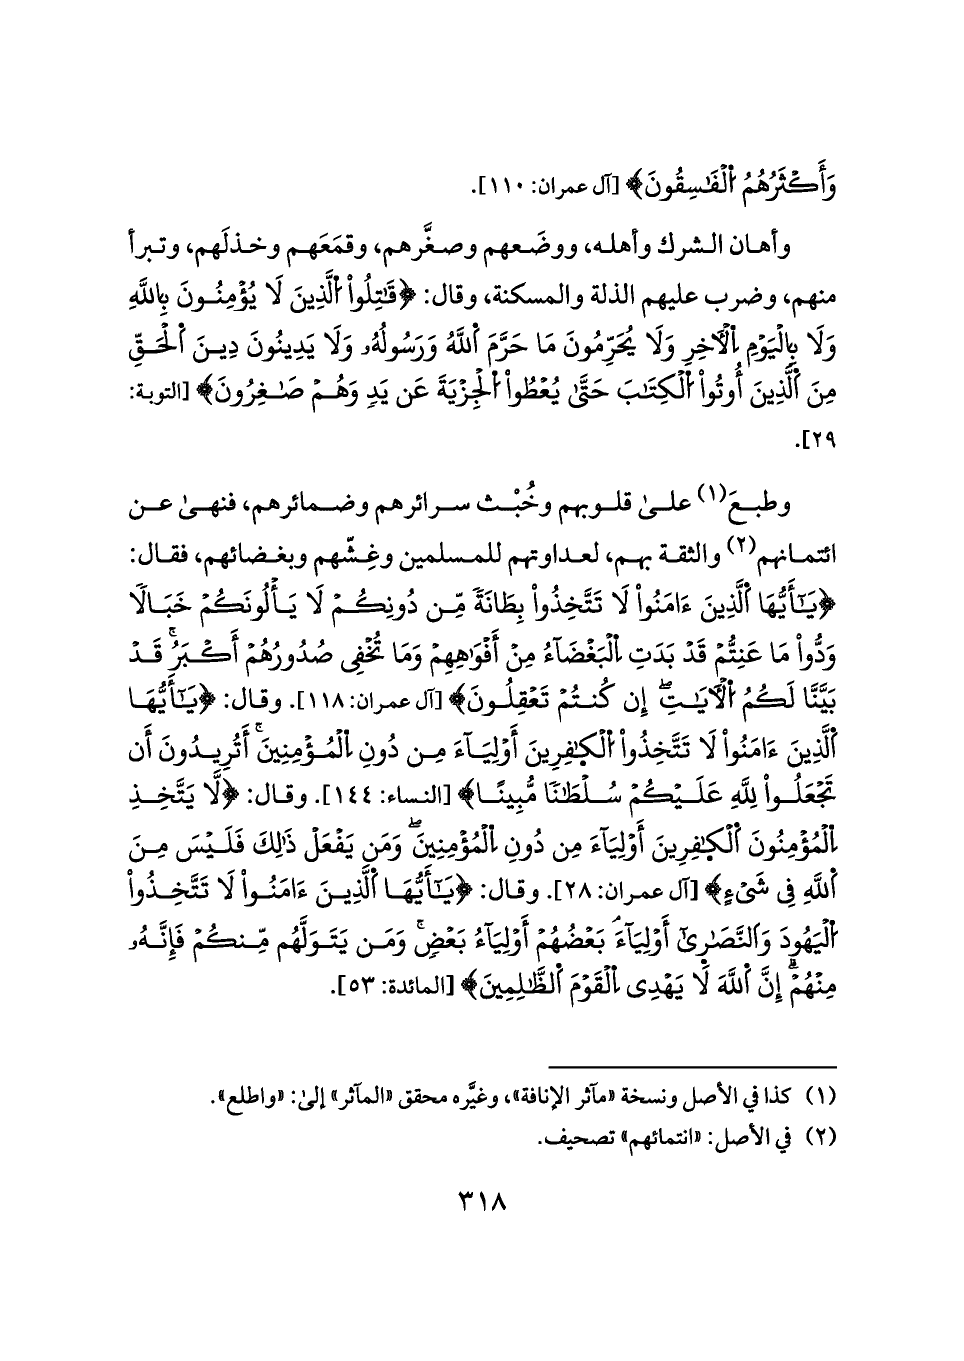 وَأَكۡثَرُهُمُ ٱلۡفَٰسِقُونَ﴾ [آل عمران: ١١٠].
وأهان الشرك وأهله، ووضَعهم وصغَّرهم، وقمَعَهم وخذلَهم، وتبرأ
منهم، وضرب عليهم الذلة والمسكنة، وقال: ﴿قَٰتِلُواْ ٱلَّذِينَ لَا يُؤۡمِنُونَ بِٱللَّهِ
وَلَا بِٱلۡيَوۡمِ ٱلۡأٓخِرِ وَلَا يُحَرِّمُونَ مَا حَرَّمَ ٱللَّهُ وَرَسُولُهُۥ وَلَا يَدِينُونَ دِينَ ٱلۡحَقِّ
مِنَ ٱلَّذِينَ أُوتُواْ ٱلۡكِتَٰبَ حَتَّىٰ يُعۡطُواْ ٱلۡجِزۡيَةَ عَن يَدٖ وَهُمۡ صَٰغِرُونَ﴾ [التوبة:
٢٩].
وطبعَ(١) علىٰ قلوبهم وخُبْث سرائرهم وضمائرهم، فنهىٰ عن
ائتمانهم(٢) والثقة بهم، لعداوتهم للمسلمين وغِشّهم وبغضائهم، فقال:
﴿يَٰٓأَيُّهَا ٱلَّذِينَ ءَامَنُواْ لَا تَتَّخِذُواْ بِطَانَةٗ مِّن دُونِكُمۡ لَا يَأۡلُونَكُمۡ خَبَالٗا
وَدُّواْ مَا عَنِتُّمۡ قَدۡ بَدَتِ ٱلۡبَغۡضَآءُ مِنۡ أَفۡوَٰهِهِمۡ وَمَا تُخۡفِي صُدُورُهُمۡ أَكۡبَرُۚ قَدۡ
بَيَّنَّا لَكُمُ ٱلۡأٓيَٰتِۖ إِن كُنتُمۡ تَعۡقِلُونَ﴾ [آل عمران: ١١٨]. وقال: ﴿يَٰٓأَيُّهَا
ٱلَّذِينَ ءَامَنُواْ لَا تَتَّخِذُواْ ٱلۡكَٰفِرِينَ أَوۡلِيَآءَ مِن دُونِ ٱلۡمُؤۡمِنِينَۚ أَتُرِيدُونَ أَن
تَجۡعَلُواْ لِلَّهِ عَلَيۡكُمۡ سُلۡطَٰنٗا مُّبِينًا﴾ [النساء: ١٤٤]. وقال: ﴿لَّا يَتَّخِذِ
ٱلۡمُؤۡمِنُونَ ٱلۡكَٰفِرِينَ أَوۡلِيَآءَ مِن دُونِ ٱلۡمُؤۡمِنِينَۖ وَمَن يَفۡعَلۡ ذَٰلِكَ فَلَيۡسَ مِنَ
ٱللَّهِ فِي شَيۡءٍ﴾ [آل عمران: ٢٨]. وقال: ﴿يَٰٓأَيُّهَا ٱلَّذِينَ ءَامَنُواْ لَا تَتَّخِذُواْ
ٱلۡيَهُودَ وَٱلنَّصَٰرَىٰٓ أَوۡلِيَآءَۘ بَعۡضُهُمۡ أَوۡلِيَآءُ بَعۡضٖۚ وَمَن يَتَوَلَّهُم مِّنكُمۡ فَإِنَّهُۥ
مِنۡهُمۡۗ إِنَّ ٱللَّهَ لَا يَهۡدِي ٱلۡقَوۡمَ ٱلظَّٰلِمِينَ﴾ [المائدة: ٥٣].
(١) كذا في الأصل ونسخة «مآثر الإنافة»، وغيَّره محقق «المآثر» إلىٰ: «واطلع».
(٢) في الأصل: «انتمائهم» تصحيف.
٣١٨